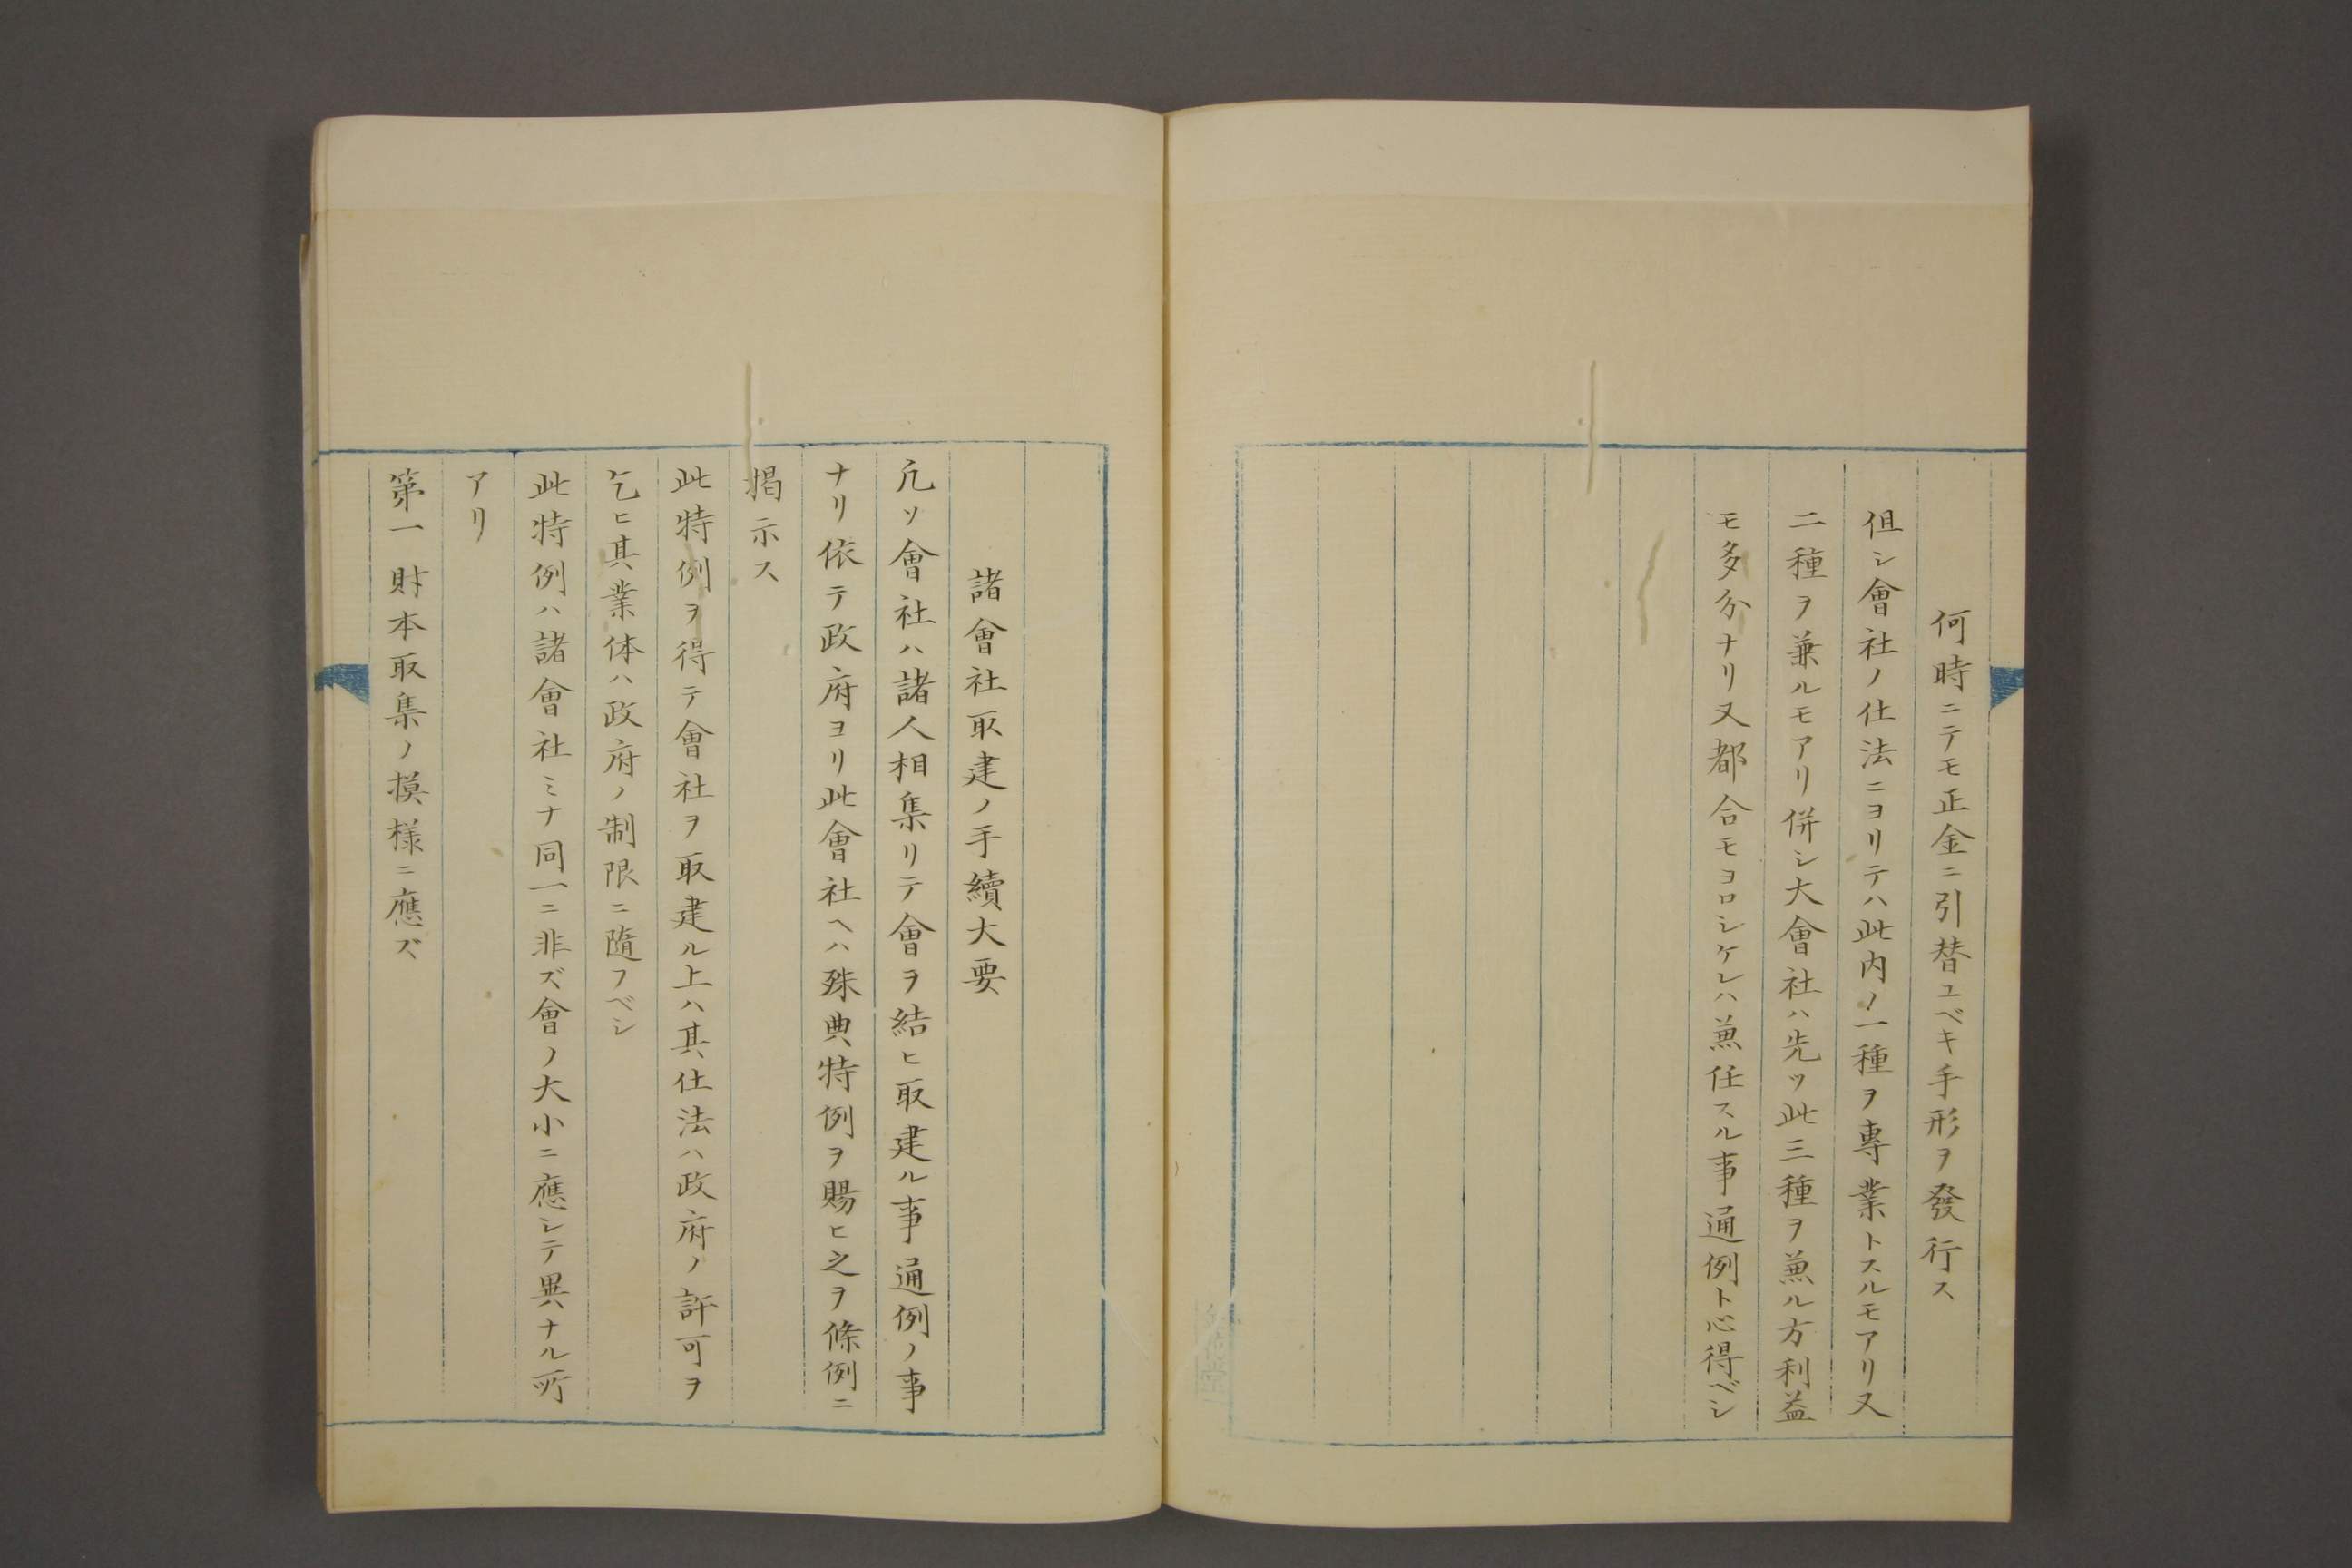 何時ニテモ正金ニ引替ユベキ手形ヲ發行ス
但シ會社ノ仕法ニヨリテハ此内ノ一種ヲ專業トスルモアリ又
二種ヲ兼ルモアリ併シ大會社ハ先ツ此三種ヲ兼ル方利益
モ多分ナリ又都合モヨロシケレハ兼任スル事通例ト心得ベシ
諸會社取建ノ手續大要
凢ソ會社ハ諸人相集リテ會ヲ結ヒ取建ル事通例ノ事
ナリ依テ政府ヨリ此會社ヘハ殊典特例ヲ賜ヒ之ヲ條例ニ
掲示ス
此特例ヲ得テ會社ヲ取建ル上ハ其仕法ハ政府ノ許可ヲ
乞ヒ其業体ハ政府ノ制限ニ隨フベシ
此特例ハ諸會社ミナ同一ニ非ズ會ノ大小ニ應シテ異ナル所
アリ
第一財本取集ノ摸様ニ應ズ